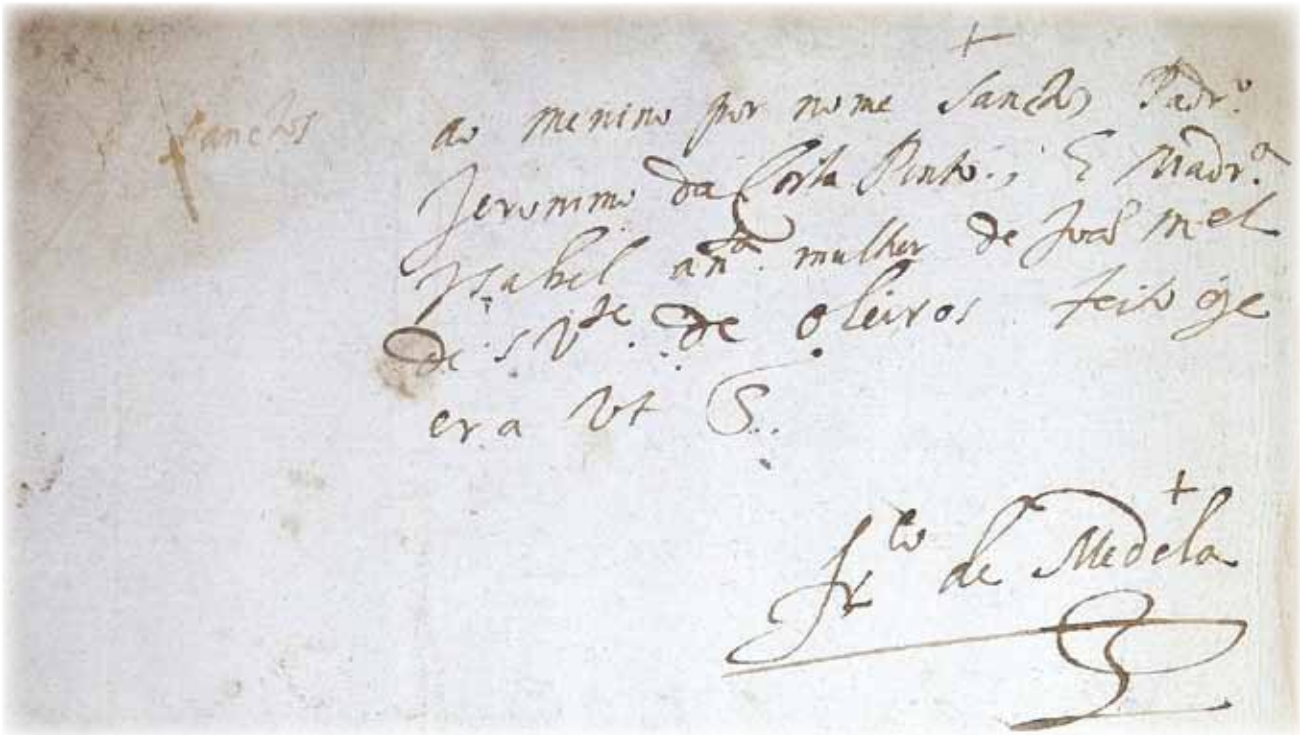 Sanchos
ao menino por nome Sanchos Padr.º
Jeronimo da Costa Pinto., E Madr.ª
Ysabel an.ª mulher de Joaõ mel
de S V.te de Oleiros feito oje
era Vt S.
fr.co de Medela